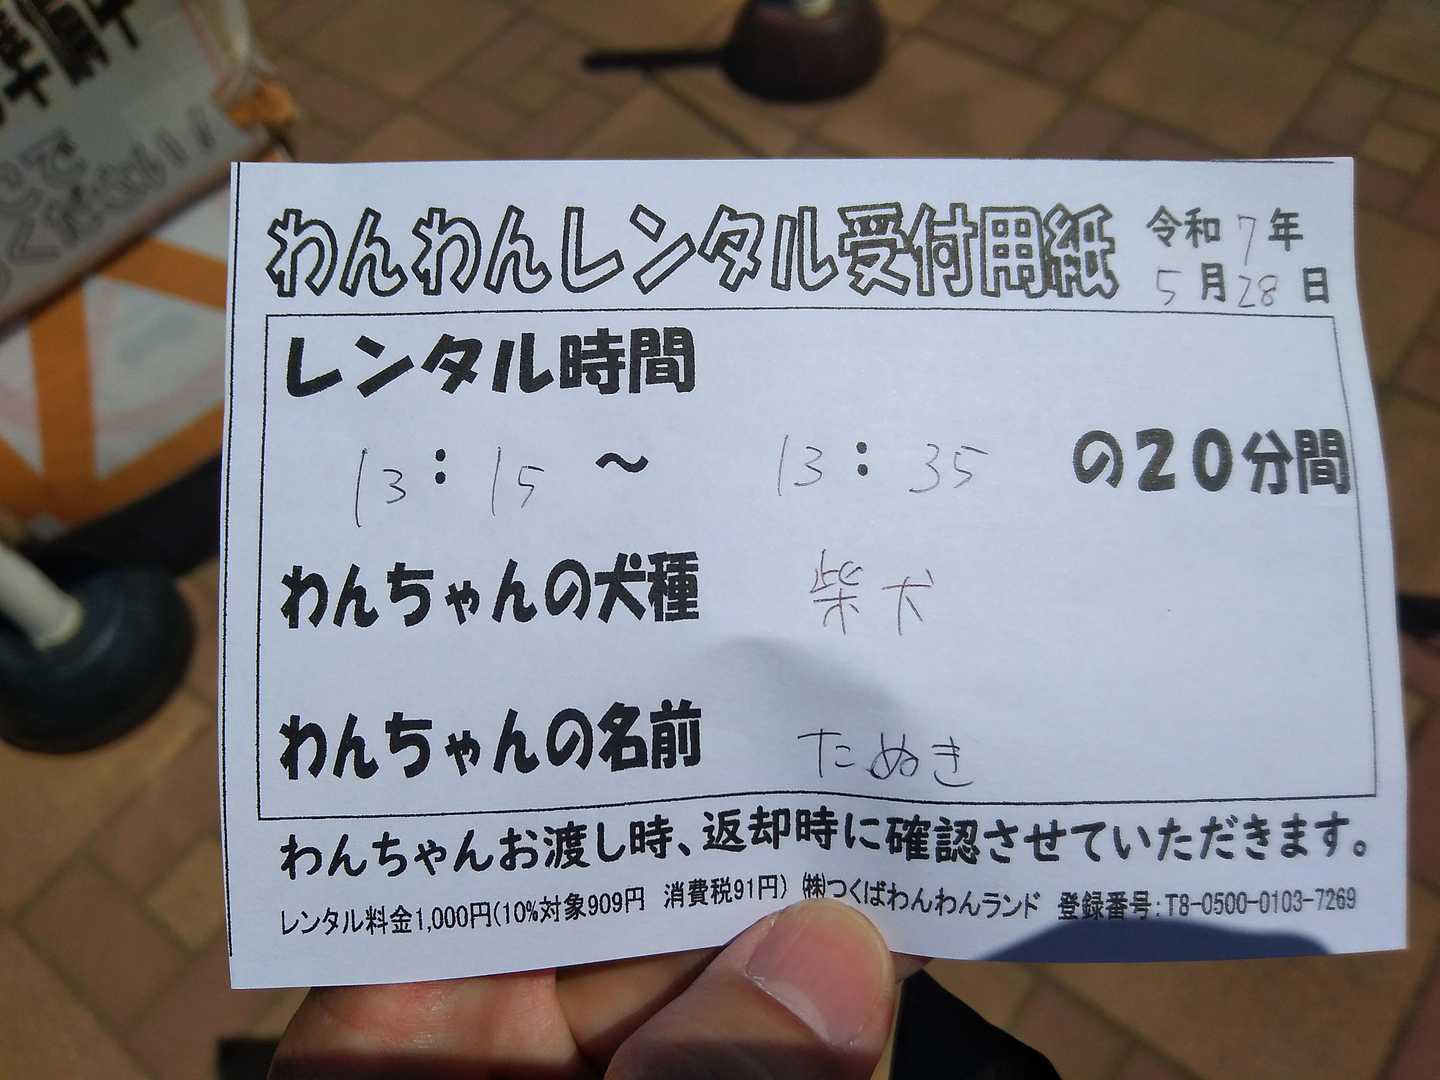 わんわんレンタル受付用紙 令和7年
5月28日
レンタル時間
13:15～13:35の20分間
わんちゃんの犬種 柴犬
わんちゃんの名前 たぬき
わんちゃんお渡し時、返却時に確認させていただきます。
レンタル料金1,000円(10%対象909円 消費税91円) ㈱つくばわんわんランド 登録番号:T8-0500-0103-7269